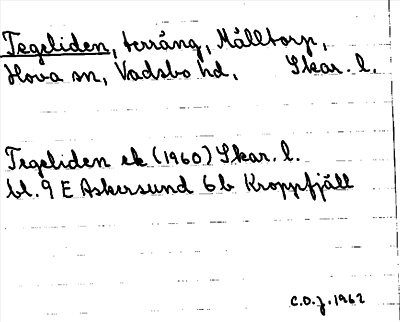 Tegeliden, terräng, Målltorp,
Hova sn, Vadsbo hd, Skar. l.
Tegeliden ek (1960) Skar. l.
bl. 9 E Askersund 6b Kroppfjäll
C.O.J. 1962